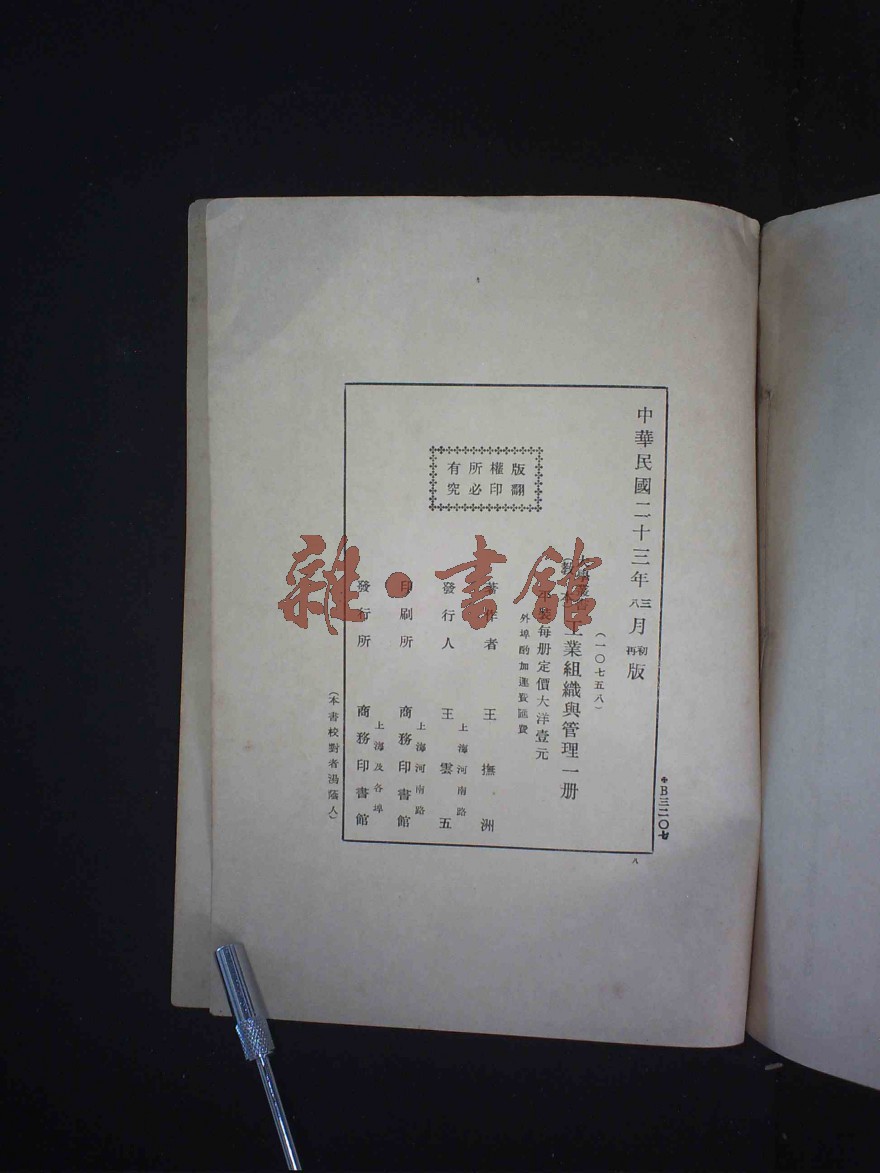 中華民國二十三年三月初版
八 再
(一〇七五八)
工業組織與管理一册
平裝每册定價大洋壹元
外埠酌加運費匯費
版權所有
翻印必究
著作者 王撫洲
發行人 王雲五
上海河南路
印刷所 商務印書館
上海河南路
發行所 商務印書館
上海及各埠
(本書校對者湯蔭人)
雜·書館